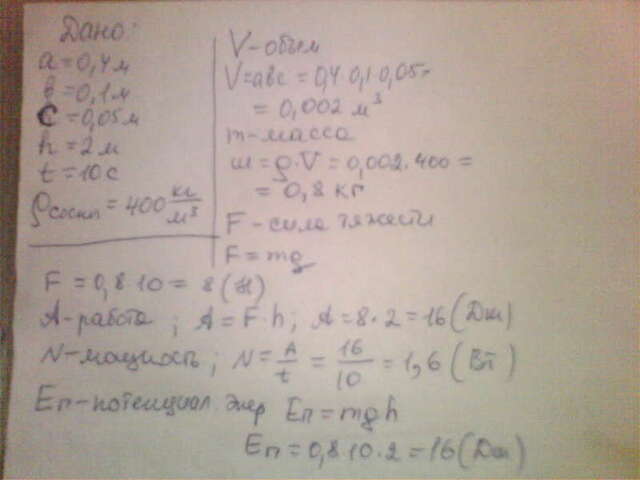 Дано:
a = 0,4 м
b = 0,1 м
c = 0,05 м
h = 2 м
t = 10 с
ρсосны = 400 кг/м³
V - объём
V = abc = 0,4·0,1·0,05 =
= 0,002 м³
m - масса
m = ρ·V = 0,002·400 =
= 0,8 кг
F - сила тяжести
F = mg
F = 0,8·10 = 8 (Н)
A - работа ; A = F·h ; A = 8·2 = 16 (Дж)
N - мощность ; N = A/t = 16/10 = 1,6 (Вт)
Eп - потенциал. энер Eп = mgh
Eп = 0,8·10·2 = 16 (Дж)